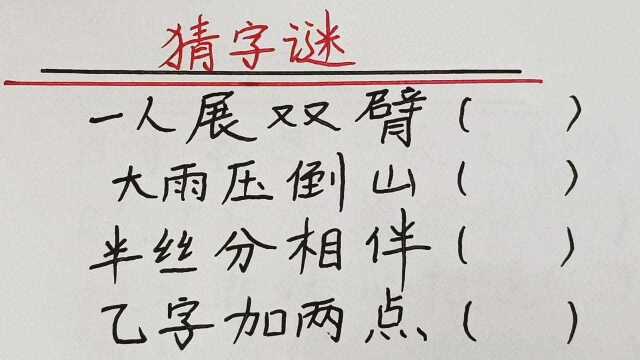 猜字谜
一人展双臂（ ）
大雨压倒山（ ）
半丝分相伴（ ）
乙字加两点（ ）